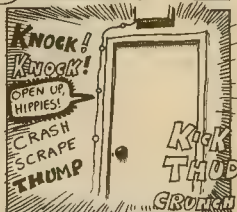 KNOCK!
KNOCK!
OPEN UP,
HIPPIES!
CRASH
SCRAPE
THUMP
KICK
THUD
CRUNCH